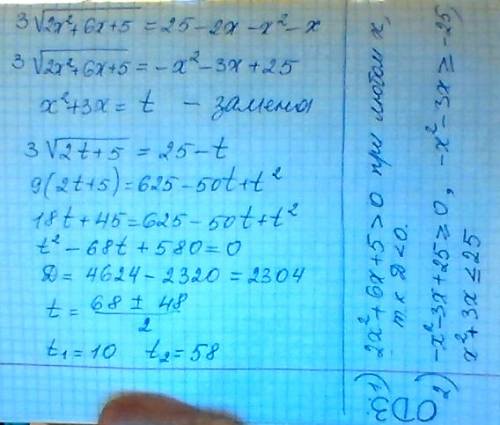 3√(2x²+6x+5) = 25-2x-x²-x
3√(2x²+6x+5) = -x²-3x+25
x²+3x = t - замена
3√(2t+5) = 25-t
9(2t+5)=625-50t+t²
18t+45=625-50t+t²
t²-68t+580=0
D= 4624-2320=2304
t= (68 ± 48)/2
t₁=10 t₂=58
ОДЗ
1) 2x²+6x+5>0 при любом x,
т к D<0.
2) -x²-3x+25≥0, -x²-3x≥-25,
x²+3x≤25